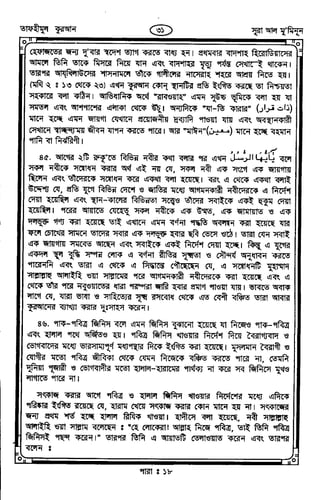 তাফহীমুল কুরআন
৩১
সূরা আল মু'মিনূন
হেফাজতের জন্য দু'বার স্বদেশ ত্যাগ করতে বাধ্য হন। প্রথমবার বাদশাহ হিরোডিয়াসের
আমলে তিনি তাকে মিসরে নিয়ে যান এবং বাদশাহর মৃত্যু পর্যন্ত সেখানেই থাকেন।
তারপর আর্খিলাউসের শাসনামলে তাঁকে গালীলের নাসেরাহ শহরে আশ্রয় নিতে হয়।
(মথি ২ : ১৩ থেকে ২৩) এখন কুরআন কোন্ স্থানটির প্রতি ইংগিত করছে তা নিশ্চয়তা
সহকারে বলা কঠিন। আভিধানিক অর্থে "রাবওয়াহ" এমন সুউচ্চ ভূমিকে বলা হয় যা
সমতল এবং আশপাশের এলাকা থেকে উঁচু। অন্যদিকে "যা-তি কারার" (ذات قرار)
মানে হচ্ছে এমন জায়গা যেখানে প্রয়োজনীয় দ্রব্যাদি পাওয়া যায় এবং অবস্থানকারী
সেখানে স্বাচ্ছন্দ্যময় জীবন যাপন করতে পারে। আর "মাঈন" (معين) মানে হচ্ছে বহমান
পানি বা নির্ঝরিণী।
৪৫. আগের ২টি রুকূ'তে বিভিন্ন নবীর কথা বলার পর এখন يٰٓاَيُّهَا الرُّسُلُ বলে
সকল নবীকে সম্বোধন করার অর্থ এই নয় যে, সকল নবী এক সংগে এক জায়গায়
ছিলেন এবং তাঁদেরকে সম্বোধন করে একথা বলা হয়েছে। বরং এ থেকে একথা বলাই
উদ্দেশ্য যে, প্রতি যুগে বিভিন্ন দেশে ও জাতির মধ্যে আগমনকারী নবীদেরকে এ নির্দেশ
দেয়া হয়েছিল এবং স্থান-কালের বিভিন্নতা সত্ত্বেও তাঁদের সবাইকে একই হুকুম দেয়া
হয়েছিল। পরের আয়াতে যেহেতু সকল নবীকে এক উম্মত, এক জামায়াত ও এক
দলভুক্ত গণ্য করা হয়েছে তাই এখানে এমন বর্ণনা পদ্ধতি অবলম্বন করা হয়েছে যার
ফলে চোখের সামনে তাদের সবার এক দলভুক্ত হবার ছবি ভেসে ওঠে। তারা যেন সবাই
এক জায়গায় সমবেত আছেন এবং সবাইকে একই নির্দেশ দেয়া হচ্ছে। কিন্তু এ যুগের
একদল স্থূল বুদ্ধি সম্পন্ন লোক এ বর্ণনা রীতির সূক্ষ্মতা ও সৌন্দর্য অনুধাবন করতে
পারেননি এবং তারা এ থেকে এ সিদ্ধান্তে পৌঁছেছেন যে, এ সম্বোধনটি মুহাম্মাদ
সাল্লাল্লাহু আলাইহি ওয়া সাল্লামের পরে আগমনকারী নবীদেরকে করা হয়েছে এবং এ
থেকে তাঁর পরে নবুওয়াতের ধারা পরম্পরা জারী হবার প্রমাণ পাওয়া যায়। ভাবতে অবাক
লাগে যে, যারা ভাষা ও সাহিত্যের সূক্ষ্ম রসবোধ থেকে এত বেশী বঞ্চিত তারা আবার
কুরআনের ব্যাখ্যা করার দুঃসাহস করেন।
৪৬. পাক-পবিত্র জিনিস বলে এমন জিনিস বুঝানো হয়েছে যা নিজেও পাক-পবিত্র
এবং হালাল পথে অর্জিতও হয়। পবিত্র জিনিস খাওয়ার নির্দেশ দিয়ে বৈরাগ্যবাদ ও
ভোগবাদের মধ্যে ভারসাম্যপূর্ণ মধ্যপন্থার দিকে ইংগিত করা হয়েছে। মুসলমান বৈরাগী ও
যোগীর মতো পবিত্র জীবিকা থেকে যেমন নিজেকে বঞ্চিত করতে পারে না, তেমনি
দুনিয়া পূজারী ও ভোগবাদীর মতো হালাল-হারামের পার্থক্য না করে সব জিনিসে মুখও
লাগাতে পারে না।
সৎকাজ করার আগে পবিত্র ও হালাল জিনিস খাওয়ার নির্দেশের মধ্যে এদিকে
পরিষ্কার ইংগিত রয়েছে যে, হারাম খেয়ে সৎকাজ করার কোন মানে হয় না। সৎকাজের
জন্য প্রথম শর্ত হচ্ছে হালাল রিযিক খাওয়া। হাদীসে বলা হয়েছে, নবী সাল্লাল্লাহু
আলাইহি ওয়া সাল্লাম বলেছেন : "হে লোকেরা! আল্লাহ নিজে পবিত্র, তাই তিনি পবিত্র
জিনিসই পছন্দ করেন।" তারপর তিনি এ আয়াতটি তেলাওয়াত করেন এবং তারপর
বলেন :
পারা : ১৮